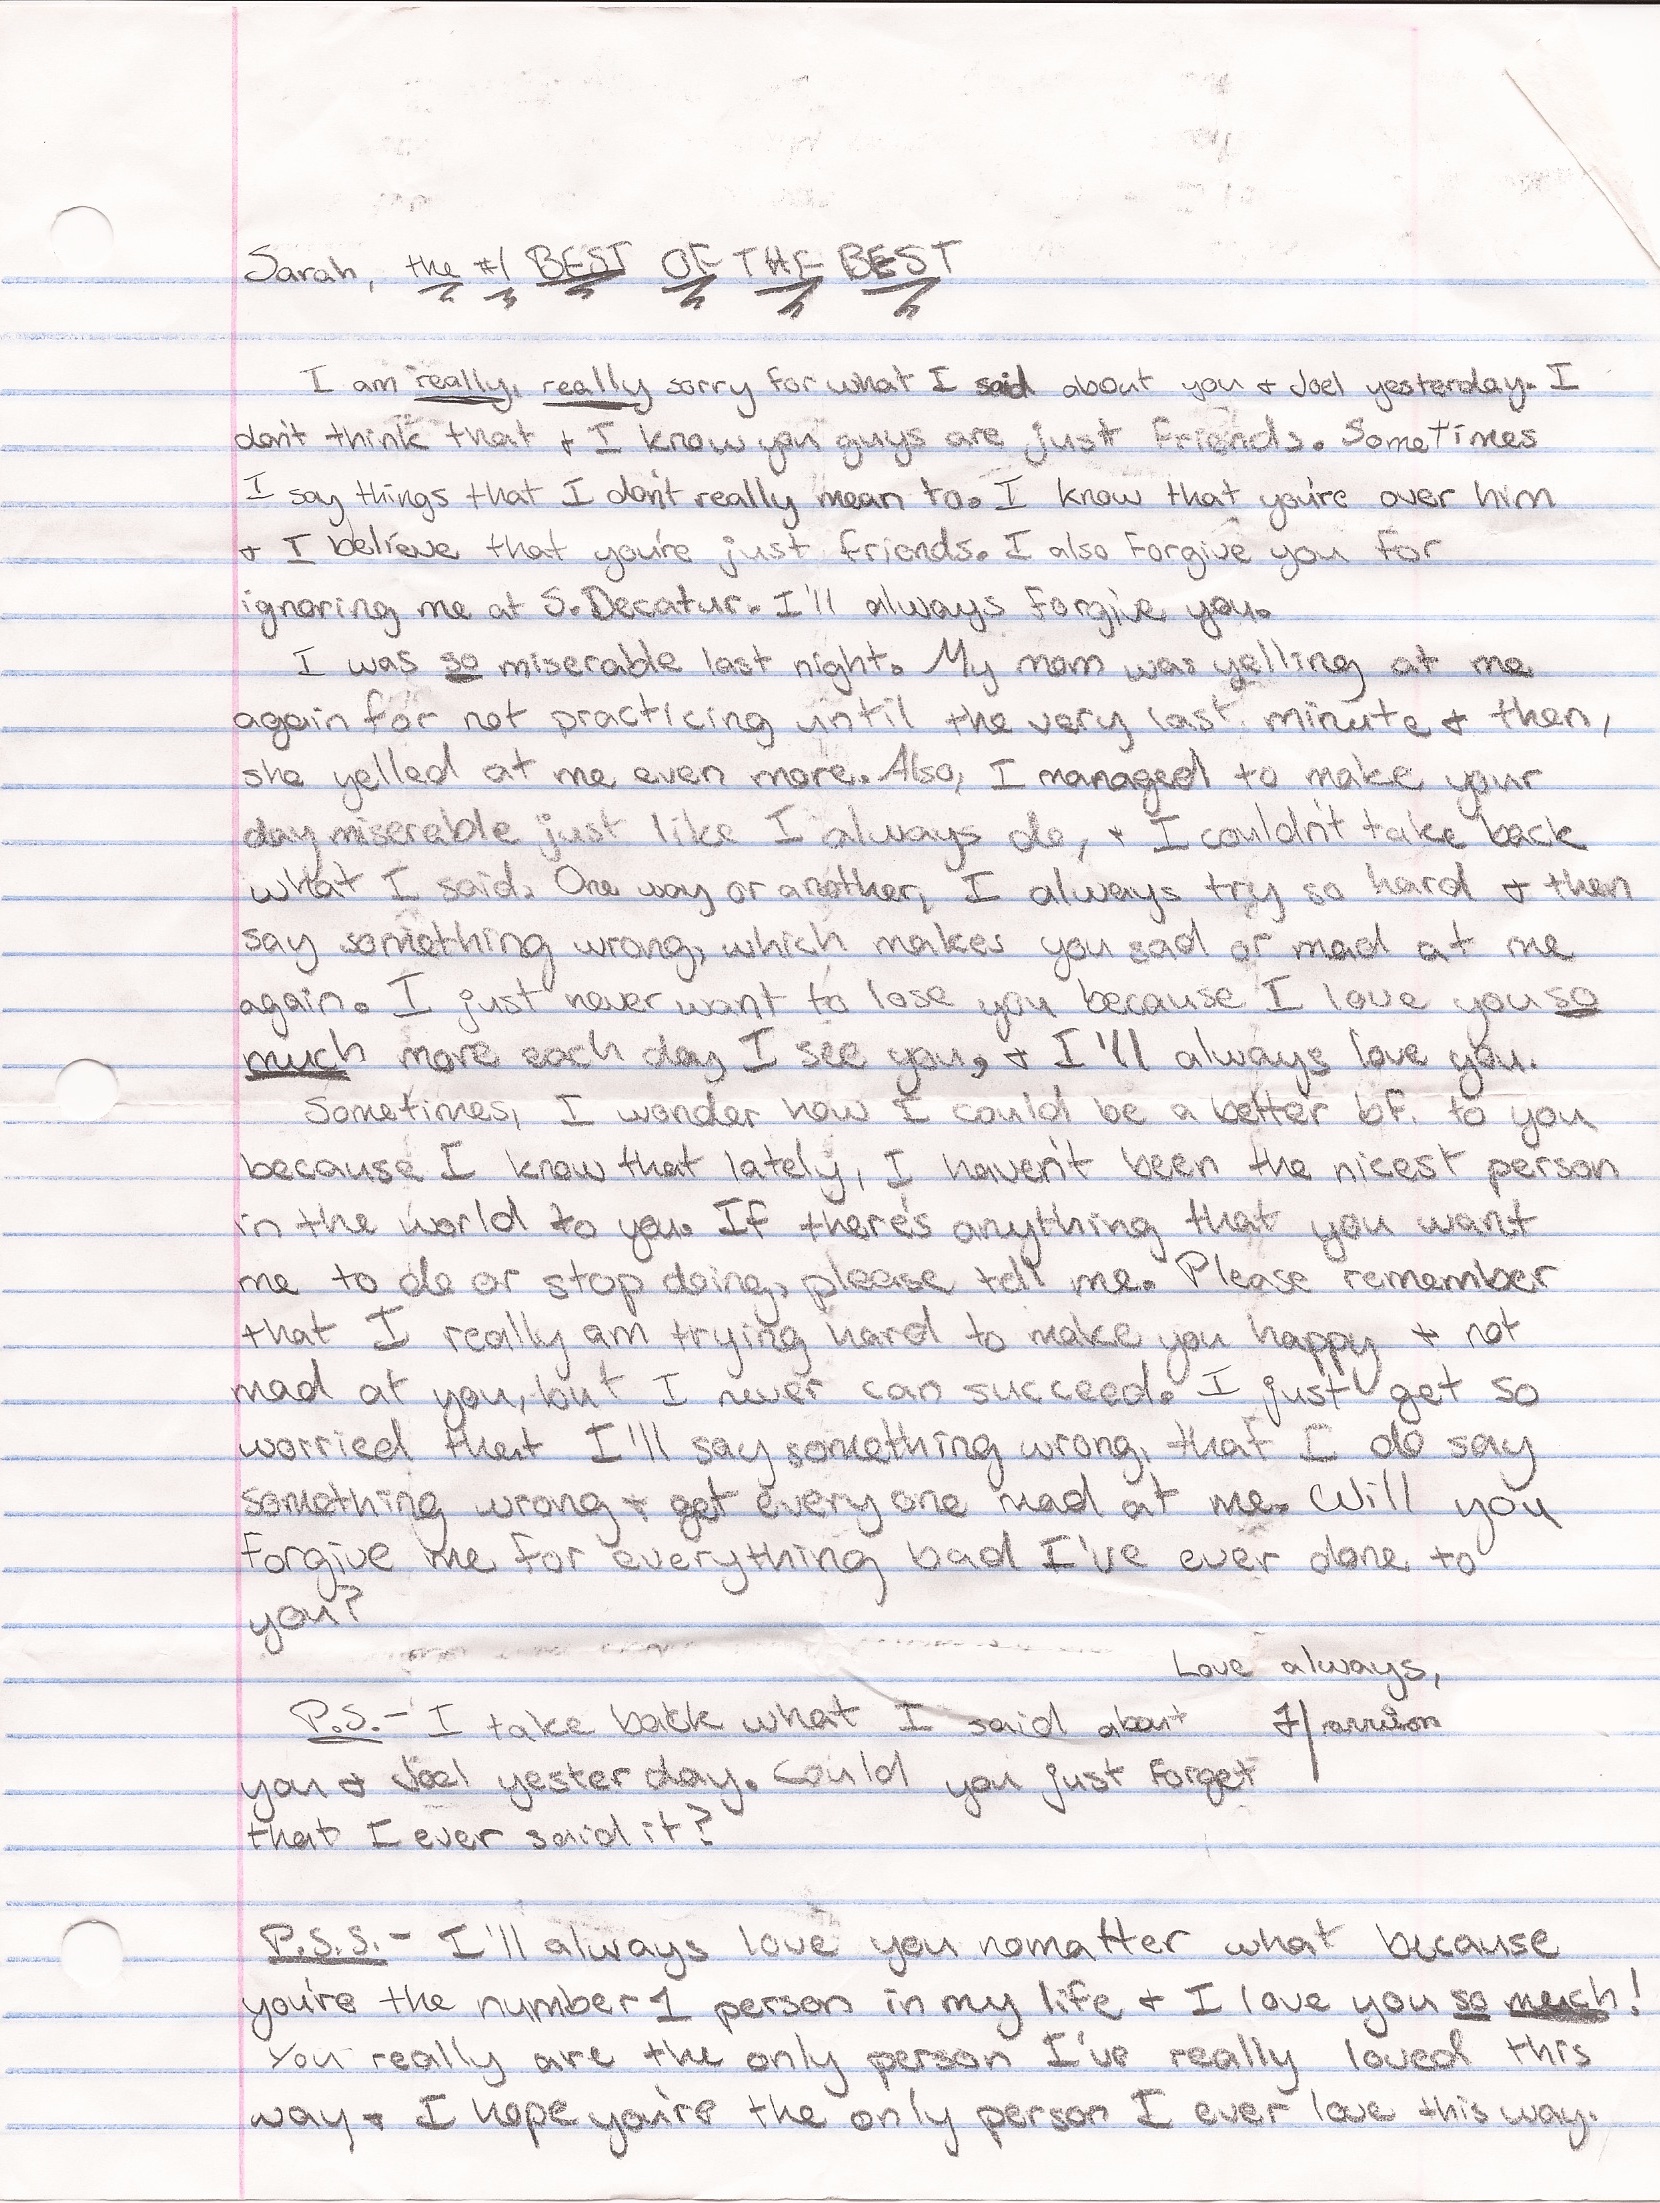 Sarah, the #1 BEST OF THE BEST
I am really, really sorry for what I said about you & Joel yesterday. I
don't think that & I know you guys are just friends. Sometimes
I say things that I don't really mean to. I know that you're over him
& I believe that you're just friends. I also forgive you for
ignoring me at S. Decatur. I'll always forgive you.
I was so miserable last night. My mom was yelling at me
again for not practicing until the very last minute & then,
she yelled at me even more. Also, I managed to make your
day miserable just like I always do, & I couldn't take back
what I said. One way or another, I always try so hard & then
say something wrong, which makes you sad or mad at me
again. I just never want to lose you because I love you so
much more each day I see you, & I'll always love you.
Sometimes, I wonder how I could be a better bf. to you
because I know that lately, I haven't been the nicest person
in the world to you. If there's anything that you want
me to do or stop doing, please tell me. Please remember
that I really am trying hard to make you happy & not
mad at you, but I never can succeed. I just get so
worried that I'll say something wrong, that I do say
something wrong & get everyone mad at me. Will you
forgive me for everything bad I've ever done to
you?
Love always,
Harrison
P.S.- I take back what I said about
you & Joel yesterday. Could you just forget
that I ever said it?
P.S.S.- I'll always love you nomatter what because
you're the number 1 person in my life & I love you so much!
You really are the only person I've really loved this
way & I hope you're the only person I ever love this way.